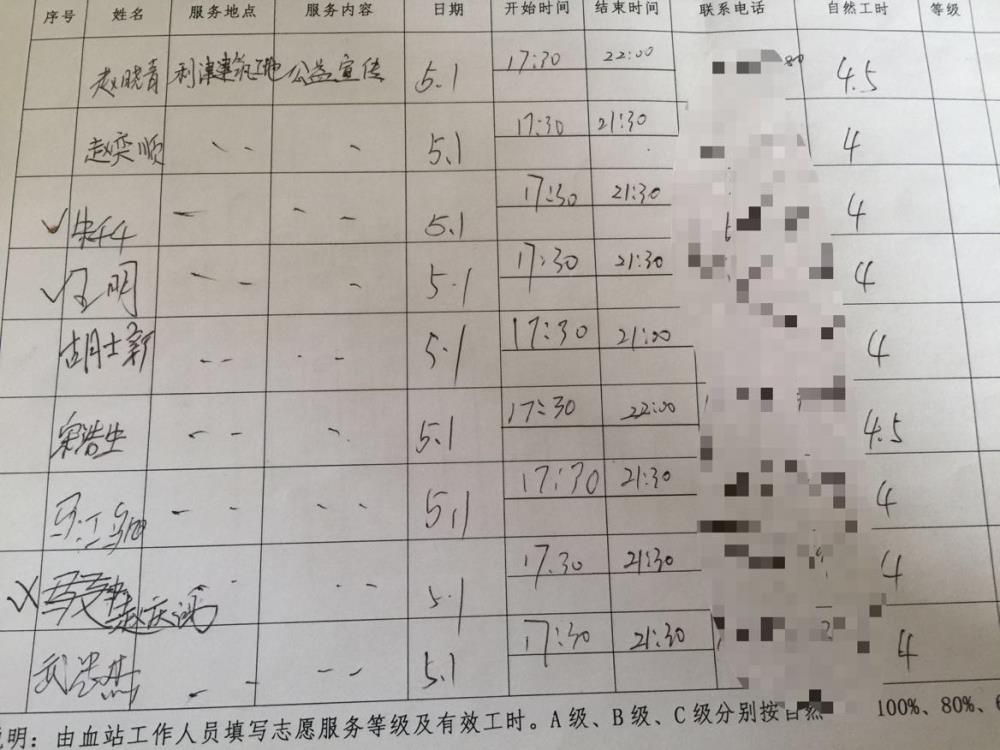 序号 姓名 服务地点 服务内容 日期 开始时间 结束时间 联系电话 自然工时 等级
赵晓青 利津建筑工地 公益宣传 5.1 17:30 22:00 80 4.5
赵奕顺 - - - 5.1 17:30 21:30 4
✓ 朱千千 - - - 5.1 17:30 21:30 4
✓ 王明 - - - 5.1 17:30 21:30 4
胡士新 - - - - 5.1 17:30 21:00 4
宋浩生 - - - 5.1 17:30 22:00 4.5
- - - - 5.1 17:30 21:30 4
✓ 赵庆鸿 - - - 5.1 17.30 21:30 4
武 杰 - - - - 5.1 17:30 21:30 4
说明：由血站工作人员填写志愿服务等级及有效工时。A级、B级、C级分别按自然 100%、80%、